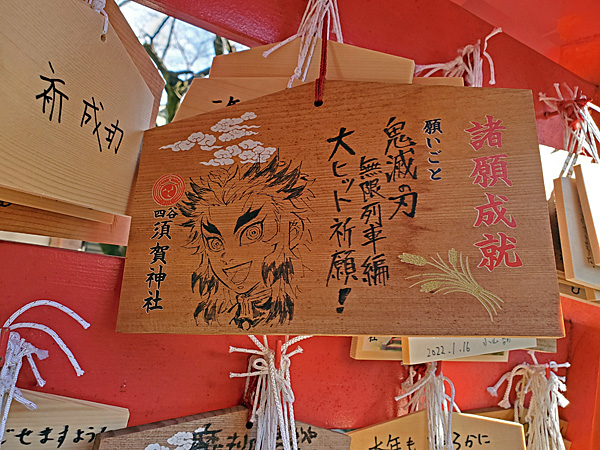 諸願成就
願いごと
鬼滅の刃
無限列車編
大ヒット祈願！
四谷
須賀神社
祈 成功
2022.1.16
せますよ
大年も
ろかに